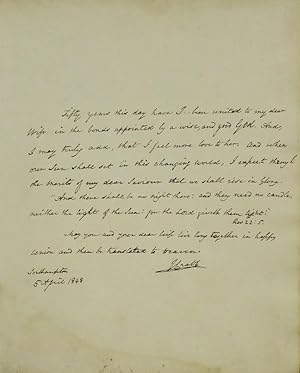 Fifty years this day have I been united to my dear
Wife in the bonds appointed by a wise and good God. And,
I may truly add, that I feel more love to her. And when
our Sun shall set in this changing world, I expect through
the merits of my dear Saviour that we shall rise in Glory.
"And there shall be no night there: and they need no candle,
neither the light of the Sun: for the Lord giveth them light."
Rev 22: 5.
May you and your dear Wife live long together in happy
union and then be translated to heaven.
Southampton
5 April 1848